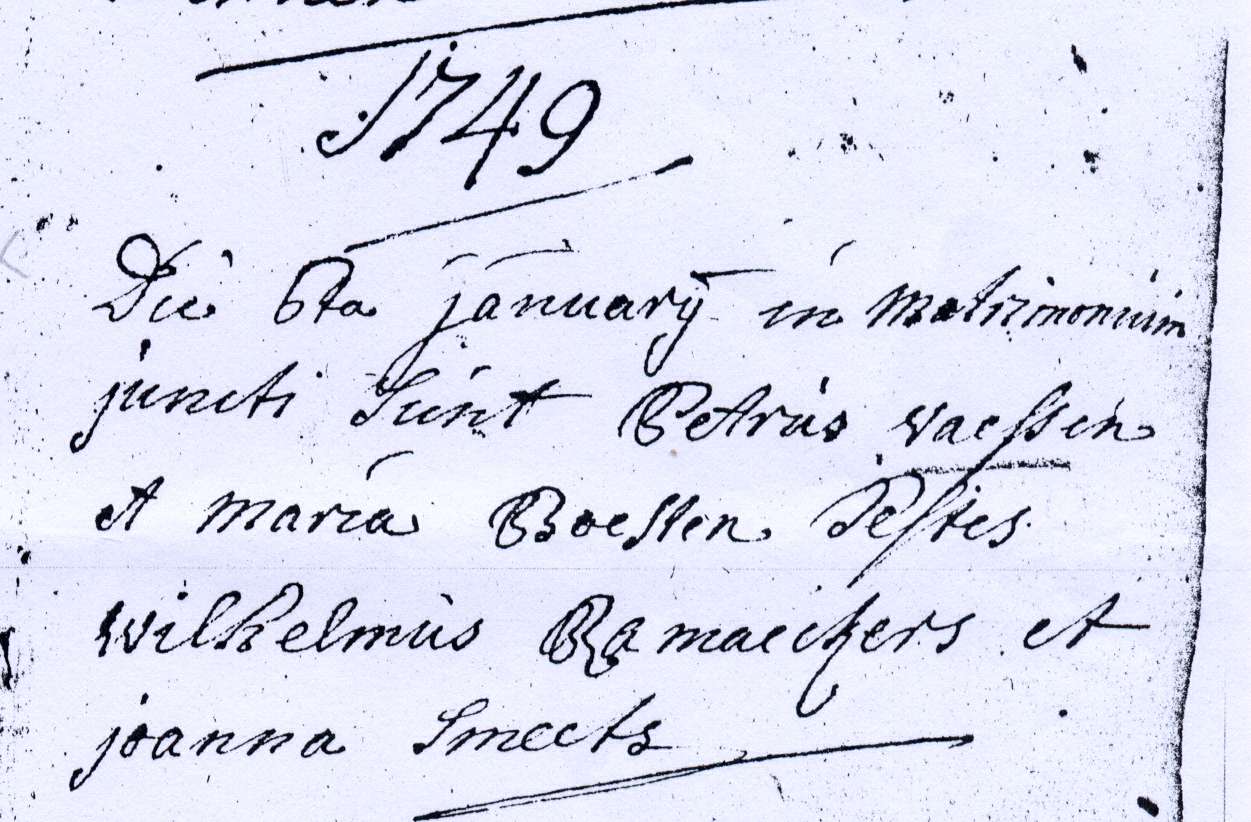 1749
Die 6ta january in matrimonium
juncti sunt Petrus waessen
et maria Boesten testes
wilhelmus Ramaeckers et
joanna Smeets